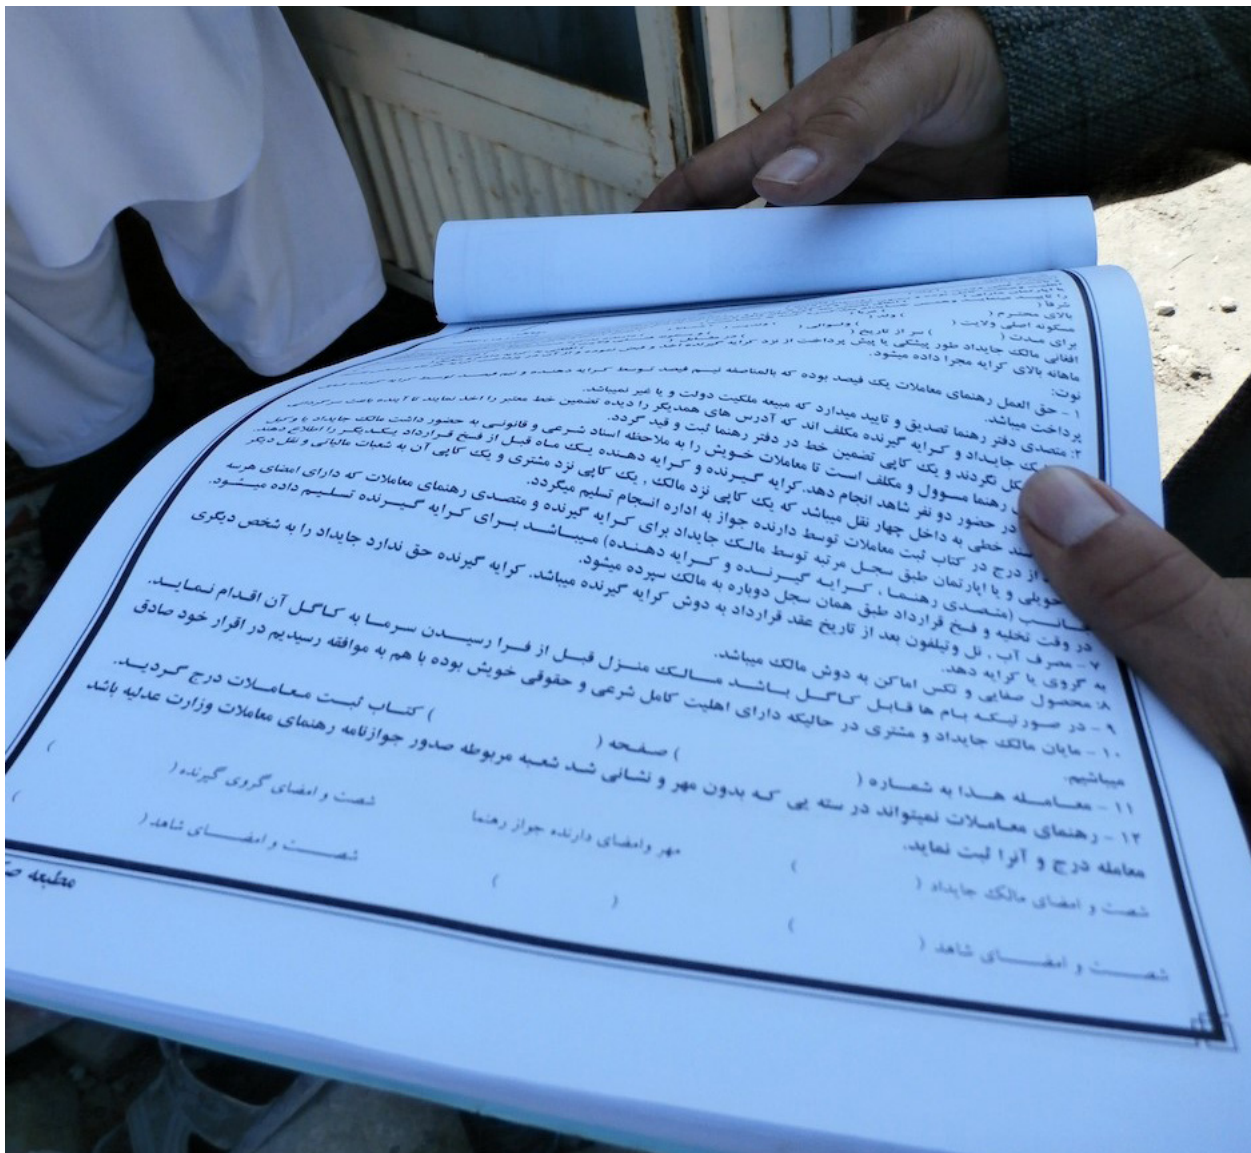 بالای محترم (
مسکونه اصلی ولایت (
برای مدت ( ) سر از تاریخ (
افغانی مالک جایداد طور پیشکی یا پیش پرداخت از نزد کرایه گیرنده اخذ و قبض نموده و از
ماهانه بالای کرایه مجرا داده میشود.
نوت:
۱ - حق العمل رهنمای معاملات یک فیصد بوده که بالمناصفه نیم فیصد توسط کرایه دهنده و نیم فیصد توسط کرایه گیرنده
پرداخت میباشد.
۲: متصدی دفتر رهنما تصدیق و تایید میدارد که مبیعه ملکیت دولت و یا غیر نمیباشد.
جایداد و کرایه گیرنده مکلف اند که آدرس های همدیگر را دیده تضمین خط معتبر را اخذ نمایند تا آینده باعث سرگردانی
نگردند و یک کاپی تضمین خط در دفتر رهنما ثبت و قید گردد.
رهنما مسوول و مکلف است تا معاملات خویش را به ملاحظه اسناد شرعی و قانونی به حضور داشت مالک جایداد یا وکیل
در حضور دو نفر شاهد انجام دهد. کرایه گیرنده و کرایه دهنده یک ماه قبل از فسخ قرارداد یکدیگر را اطلاع دهند.
خطی به داخل چهار نقل میباشد که یک کاپی نزد مالک ، یک کاپی نزد مشتری و یک کاپی آن به شعبات مالیاتی و نقل دیگر
از درج در کتاب ثبت معاملات توسط دارنده جواز به اداره انسجام تسلیم میگردد.
حویلی و یا اپارتمان طبق سجل مرتبه توسط مالک جایداد برای کرایه گیرنده و متصدی رهنمای معاملات که دارای امضای هرسه
(متصدی رهنما ، کرایه گیرنده و کرایه دهنده) میباشد برای کرایه گیرنده تسلیم داده میشود.
در وقت تخلیه و فسخ قرارداد طبق همان سجل دوباره به مالک سپرده میشود.
۷ - مصرف آب ، تل وتیلفون بعد از تاریخ عقد قرارداد به دوش کرایه گیرنده میباشد. کرایه گیرنده حق ندارد جایداد را به شخص دیگری
به گروی یا کرایه دهد.
۸: محصول صفایی و تکس اماکن به دوش مالک میباشد.
۹ - در صورتیکه بام ها قابل کاگل باشد مالک منزل قبل از فرا رسیدن سرما به کاگل آن اقدام نماید.
۱۰ - مایان مالک جایداد و مشتری در حالیکه دارای اهلیت کامل شرعی و حقوقی خویش بوده با هم به موافقه رسیدیم در اقرار خود صادق
میباشیم.
۱۱ - معامله هذا به شماره ( ) صفحه ( ) کتاب ثبت معاملات درج گردید.
۱۲ - رهنمای معاملات نمیتواند در سته یی که بدون مهر و نشانی شد شعبه مربوطه صدور جوازنامه رهنمای معاملات وزارت عدلیه باشد
معامله درج و آنرا ثبت نماید.
شصت و امضای مالک جایداد ( ) مهر وامضای دارنده جواز رهنما ( ) شصت و امضای گروی گیرنده ( )
شصت و امضای شاهد ( ) شصت و امضای شاهد ( )
مطبعه